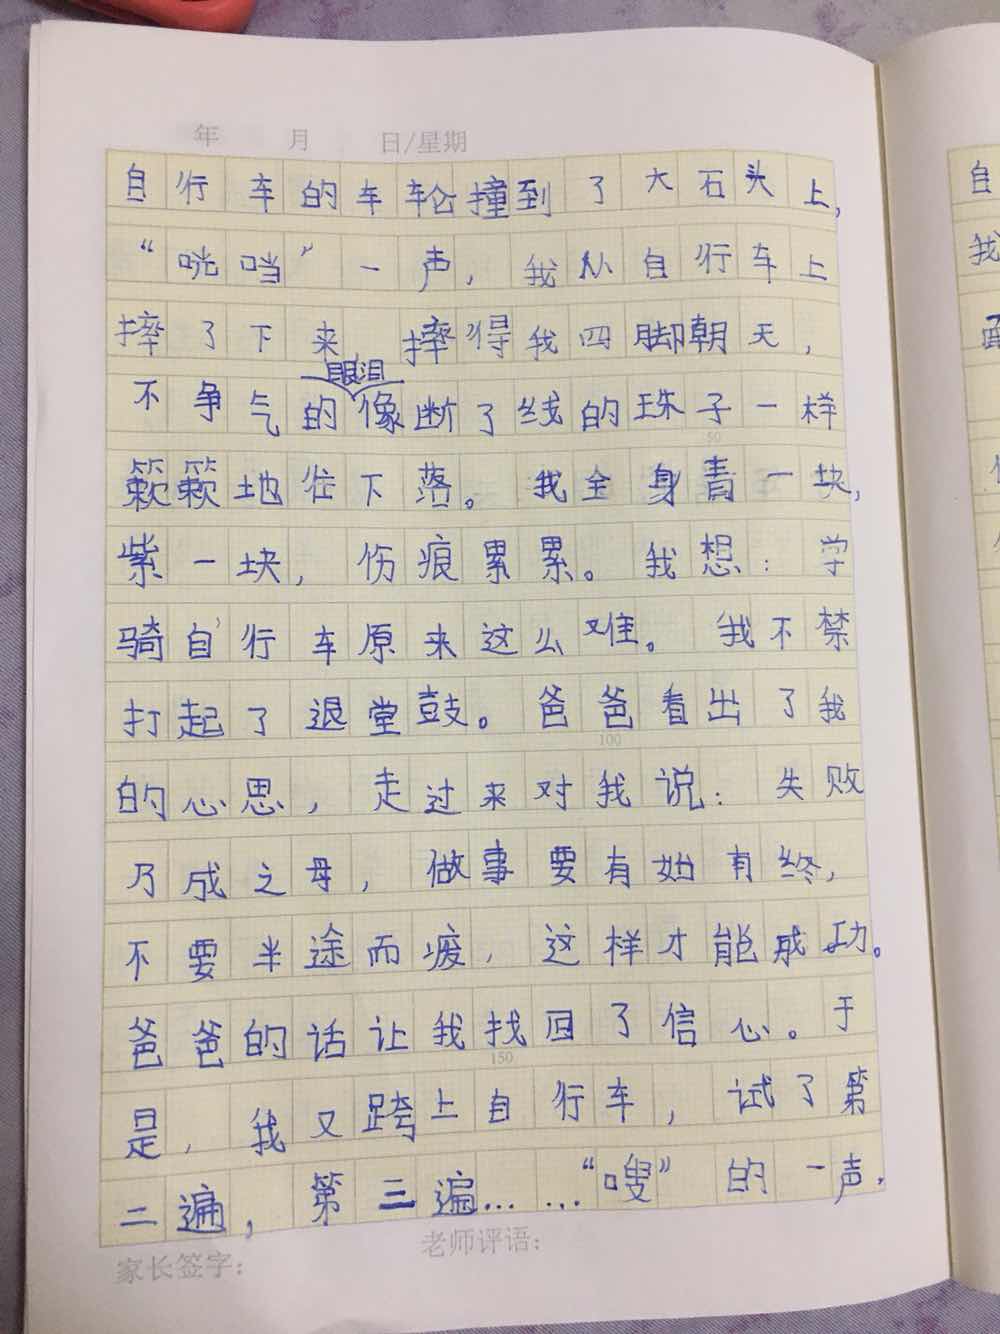 年 月 日/星期
自行车的车轮撞到了大石头上,
“咣当”一声,我从自行车上
摔了下来,摔得我四脚朝天,
不争气的眼泪像断了线的珠子一样
簌簌地往下落。我全身青一块,
紫一块,伤痕累累。我想:学
骑自行车原来这么难。我不禁
打起了退堂鼓。爸爸看出了我
的心思,走过来对我说:失败
乃成之母,做事要有始有终,
不要半途而废,这样才能成功。
爸爸的话让我找回了信心。于
是,我又跨上自行车,试了第
二遍,第三遍……“嗖”的一声,
老师评语:
家长签字:
50
100
150
自
我